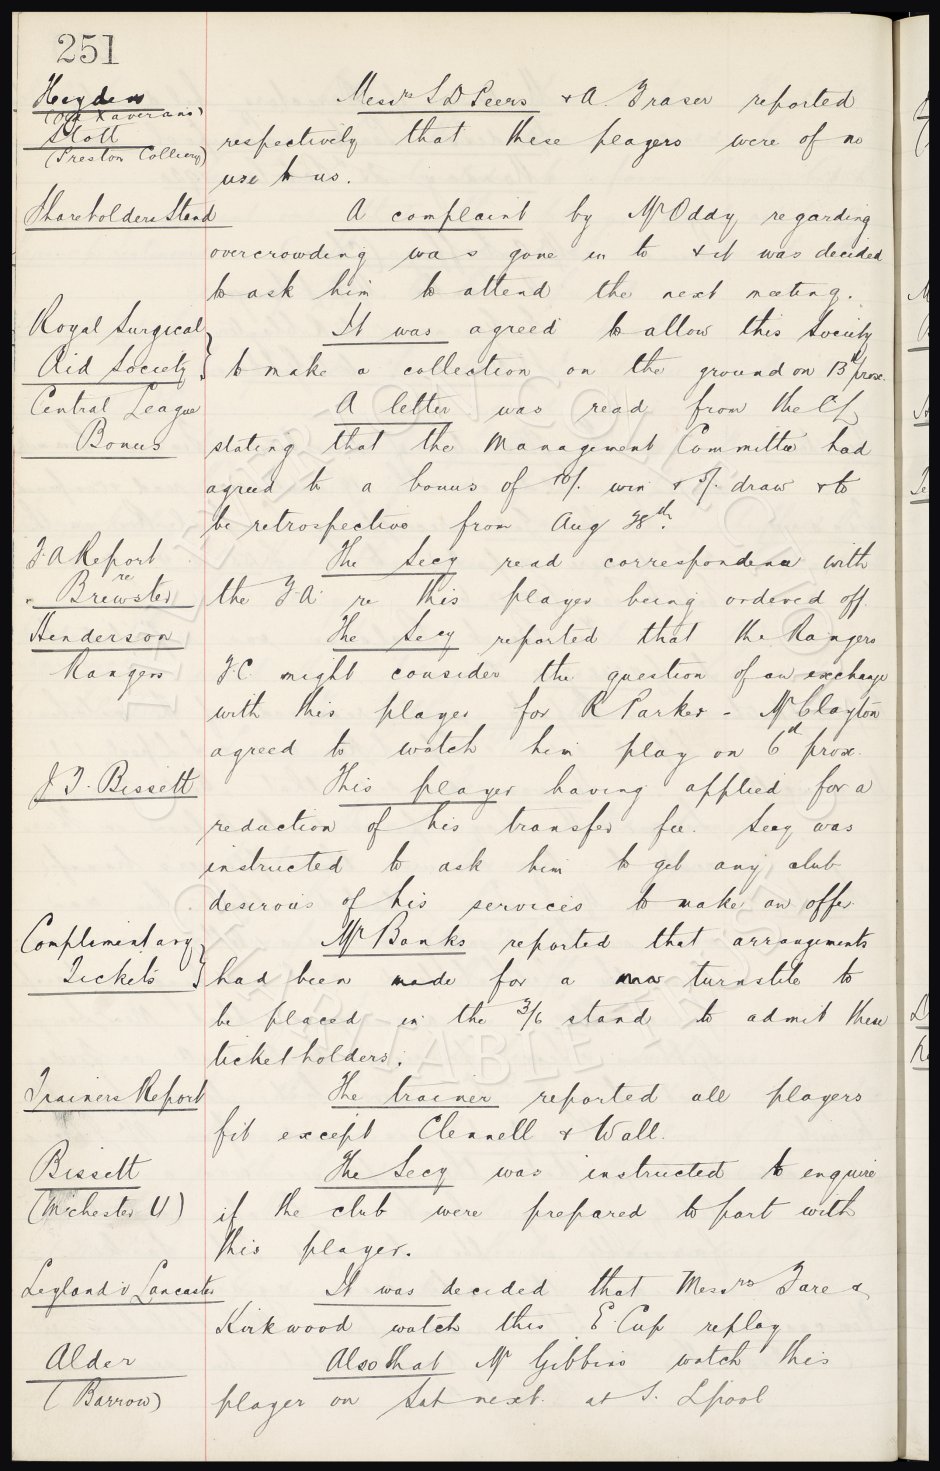 251
Heyden
(Old Xaverians)
Stott
(Preston Colliery)
Messrs S D Peers & A. Fraser reported
respectively that these players were of no
use to us.
Shareholders Stand
A complaint by Mr Oddy regarding
overcrowding was gone in to & it was decided
to ask him to attend the next meeting.
Royal Surgical
Aid Society
It was agreed to allow this Society
to make a collection on the ground on 13th prox.
Central League
Bonus
A letter was read from the CL
stating that the Management Committee had
agreed to a bonus of 10/. win & 5/. draw & to
be retrospective from Aug 28th.
F.A Report
re
Brewster
The Secy read correspondence with
the F.A. re this player being ordered off.
Henderson
Rangers
The Secy reported that the Rangers
F.C. might consider the question of an exchange
with this player for R Parker - Mr Clayton
agreed to watch him play on 6d prox.
J. T. Bissett
This player having applied for a
reduction of his transfer fee. Secy was
instructed to ask him to get any club
desirous of his services to make an offer
Complimentary
Tickets
Mr Banks reported that arrangements
had been made for a new turnstile to
be placed in the 3/6 stand to admit these
ticketholders.
Trainers Report
The trainer reported all players
fit except Clennell & Wall.
Bissett
(M'chester U)
The Secy was instructed to enquire
if the club were prepared to part with
this player.
Leyland v Lancaster
It was decided that Messrs Tare &
Kirkwood watch this E. Cup replay
Alder
(Barrow)
Also that Mr Gibbins watch this
player on Sat next. at S. Lpool